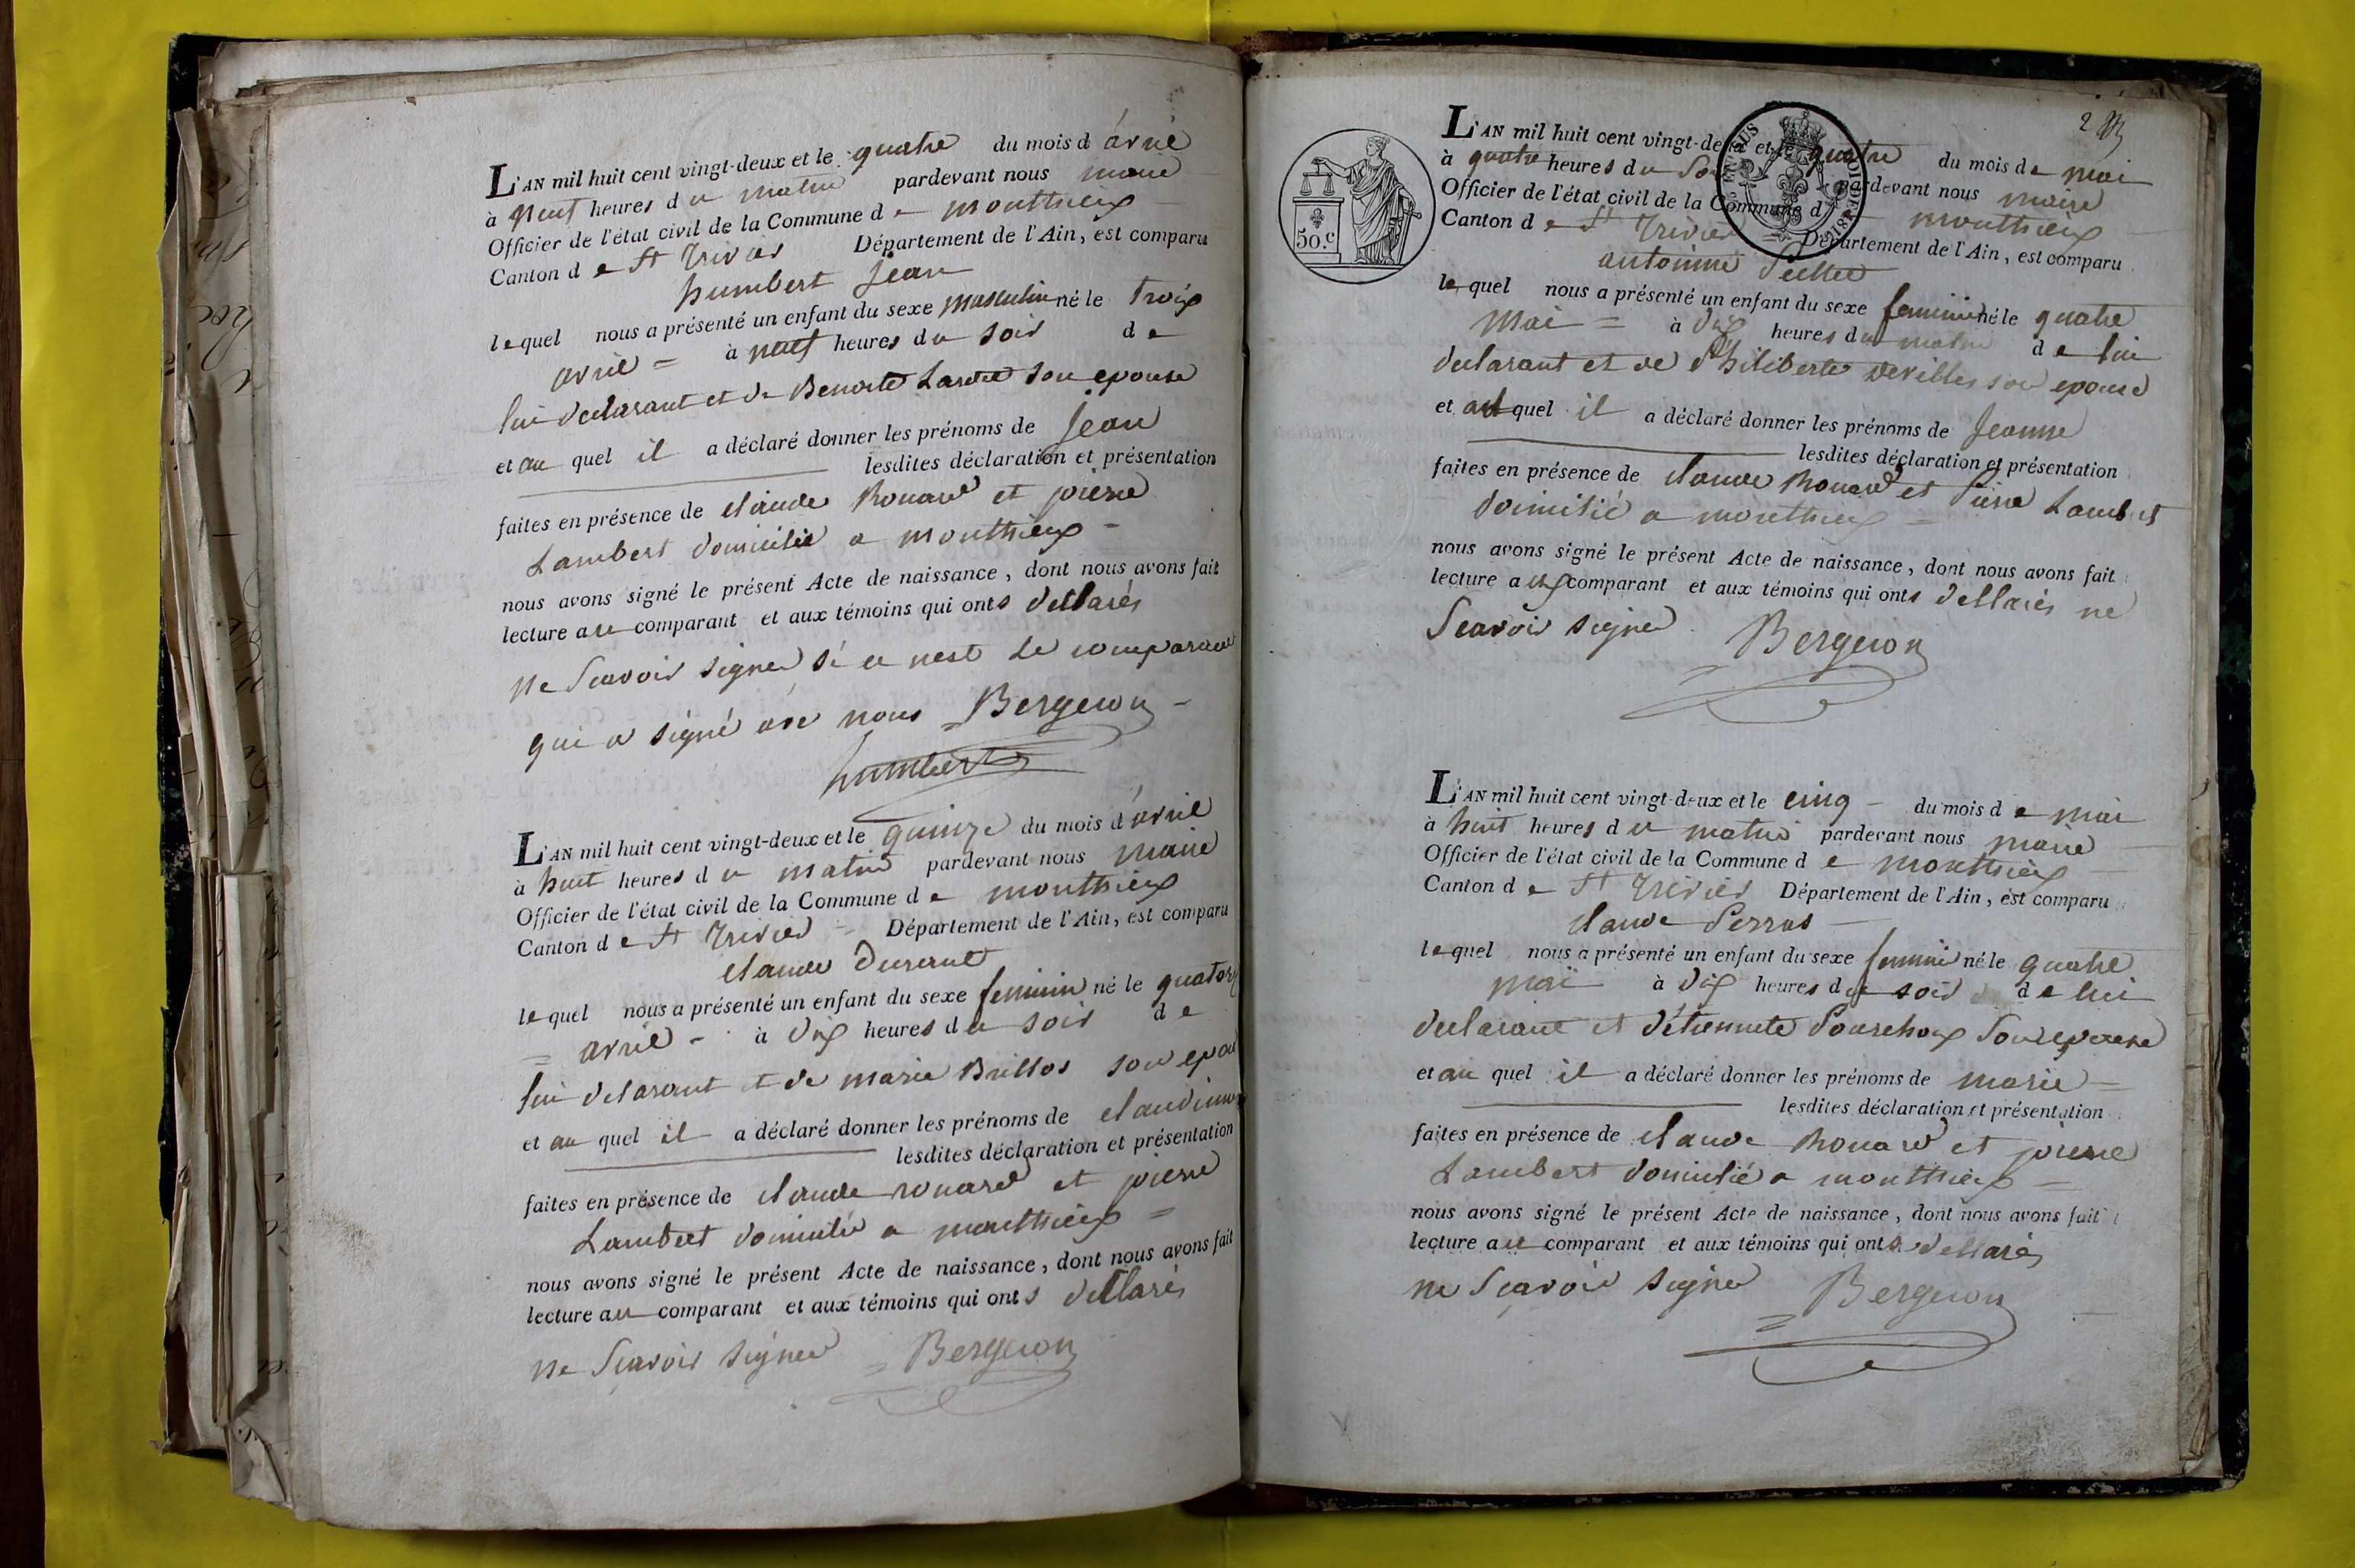 L'AN mil huit cent vingt-deux et le quatre du mois d avril
à neuf heures du matin pardevant nous maire
Officier de l'état civil de la Commune de monthieux
Canton de St Trivier Département de l'Ain, est comparu
humbert Jean
lequel nous a présenté un enfant du sexe masculin né le trois
avril = à neuf heures du soir de
lui declarant et de Benoite son epouse
et au quel il a déclaré donner les prénoms de Jean
lesdites déclaration et présentation
faites en présence de claude Ronard et pierre
Lambert domicilié a monthieux =
nous avons signé le présent Acte de naissance, dont nous avons fait
lecture au comparant et aux témoins qui onts dellarés
ne Scavoir signer si ce nest Le comparant
qui a signé ave nous Bergeron
humbert
L'AN mil huit cent vingt-deux et le quinze du mois d'avril
à huit heures du matin pardevant nous maire
Officier de l'état civil de la Commune de monthieux
Canton de St Trivier Département de l'Ain, est comparu
claude Durand
lequel nous a présenté un enfant du sexe feminin né le quatorz
= avril - à dix heures du soir de
lui delarant et de marie Brillos son epou
et au quel il a déclaré donner les prénoms de claudine
lesdites déclaration et présentation
faites en présence de claude ronard et pierre
Lambert domicilié a monthieux =
nous avons signé le présent Acte de naissance, dont nous avons fait
lecture au comparant et aux témoins qui onts dellarés
ne Scavoir signer = Bergeron
2
50.c
L'AN mil huit cent vingt-deux et le quatre du mois de mai
à quatre heures du Soir pardevant nous maire
Officier de l'état civil de la Commune de monthieux
Canton de St Trivier Département de l'Ain, est comparu
antoine
lequel nous a présenté un enfant du sexe feminin né le quatre
mai = à dix heures du matin de lui
declarant et de Philiberte devilles son epouse
et au quel il a déclaré donner les prénoms de Jeanne
lesdites déclaration et présentation
faites en présence de claude Ronard et Pierre Lambert
domicilié a monthieux =
nous avons signé le présent Acte de naissance, dont nous avons fait
lecture aux comparant et aux témoins qui onts dellarés ne
Scavoir signer Bergeron
L'AN mil huit cent vingt-deux et le cinq - du mois de mai
à huit heures du matin pardevant nous maire
Officier de l'état civil de la Commune de monthieux
Canton de St Trivier Département de l'Ain, est comparu
claude Perras
lequel nous a présenté un enfant du sexe feminin né le quatre
mai à dix heures du soir de lui
declarant et d'étiennete Pourchoux Son epouse
et au quel il a déclaré donner les prénoms de marie =
lesdites déclaration et présentation
faites en présence de claude Ronard et pierre
Lambert domicilié a monthieux =
nous avons signé le présent Acte de naissance, dont nous avons fait
lecture au comparant et aux témoins qui onts dellarés
ne Scavoir signer Bergeron